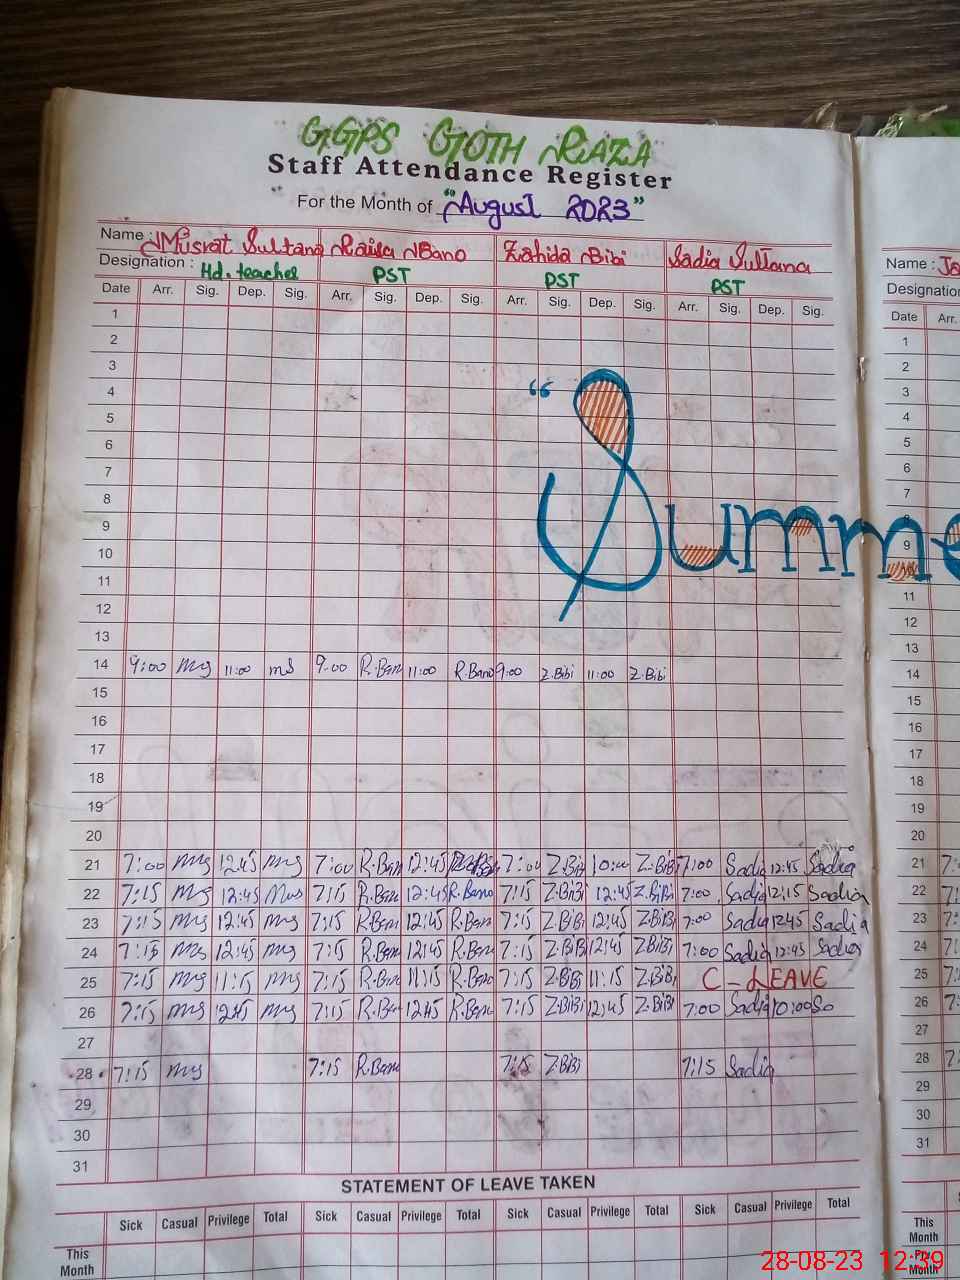 GGPS GOTH RAZA
Staff Attendance Register
For the Month of "August 2023"
Name : Musrat Sultana Raisa Bano Zahida Bibi Sadia Sultana
Designation : Hd. teacher PST PST PST
Date Arr. Sig. Dep. Sig. Arr. Sig. Dep. Sig. Arr. Sig. Dep. Sig. Arr. Sig. Dep. Sig.
1
2
3
4
5
6
7
8
9
10
11
12
13
"Summe
14 9:00 ms 11:00 ms 9:00 R.Bano 11:00 R.Bano 9:00 Z.Bibi 11:00 Z.Bibi
15
16
17
18
19
20
21 7:00 ms 12:45 ms 7:00 R.Bano 12:45 7:00 Z.Bibi 10:00 Z.Bibi 7:00 Sadia 12:45 Sadia
22 7:15 ms 12:45 7:15 R.Bano 12:45 R.Bano 7:15 Z.BiBi 12:45 Z.BiBi 7:00 Sadia 12:15 Sadia
23 7:15 ms 12:45 ms 7:15 R.Bano 12:45 R.Bano 7:15 Z.BiBi 12:45 Z.BiBi 7:00 Sadia 12:45 Sadia
24 7:15 ms 12:45 ms 7:15 R.Bano 12:45 R.Bano 7:15 Z.BiBi 12:45 Z.BiBi 7:00 Sadia 12:45 Sadia
25 7:15 ms 11:15 ms 7:15 R.Bano 11:15 R.Bano 7:15 Z.BiBi 11:15 Z.BiBi C-LEAVE
26 7:15 ms 12:45 ms 7:15 R.Bano 12:45 R.Bano 7:15 Z.BiBi 12:45 Z.BiBi 7:00 Sadia 10:00 Sa
27
28 7:15 ms 7:15 R.Bano 7:15 Z.BiBi 7:15 Sadia
29
30
31
STATEMENT OF LEAVE TAKEN
Sick Casual Privilege Total Sick Casual Privilege Total Sick Casual Privilege Total Sick Casual Privilege Total
This Month
Name :
Designation
Date Arr.
1
2
3
4
5
6
7
8
9
10
11
12
13
14
15
16
17
18
19
20
21
22
23
24
25
26
27
28
29
30
31
This Month
28-08-23 12:39